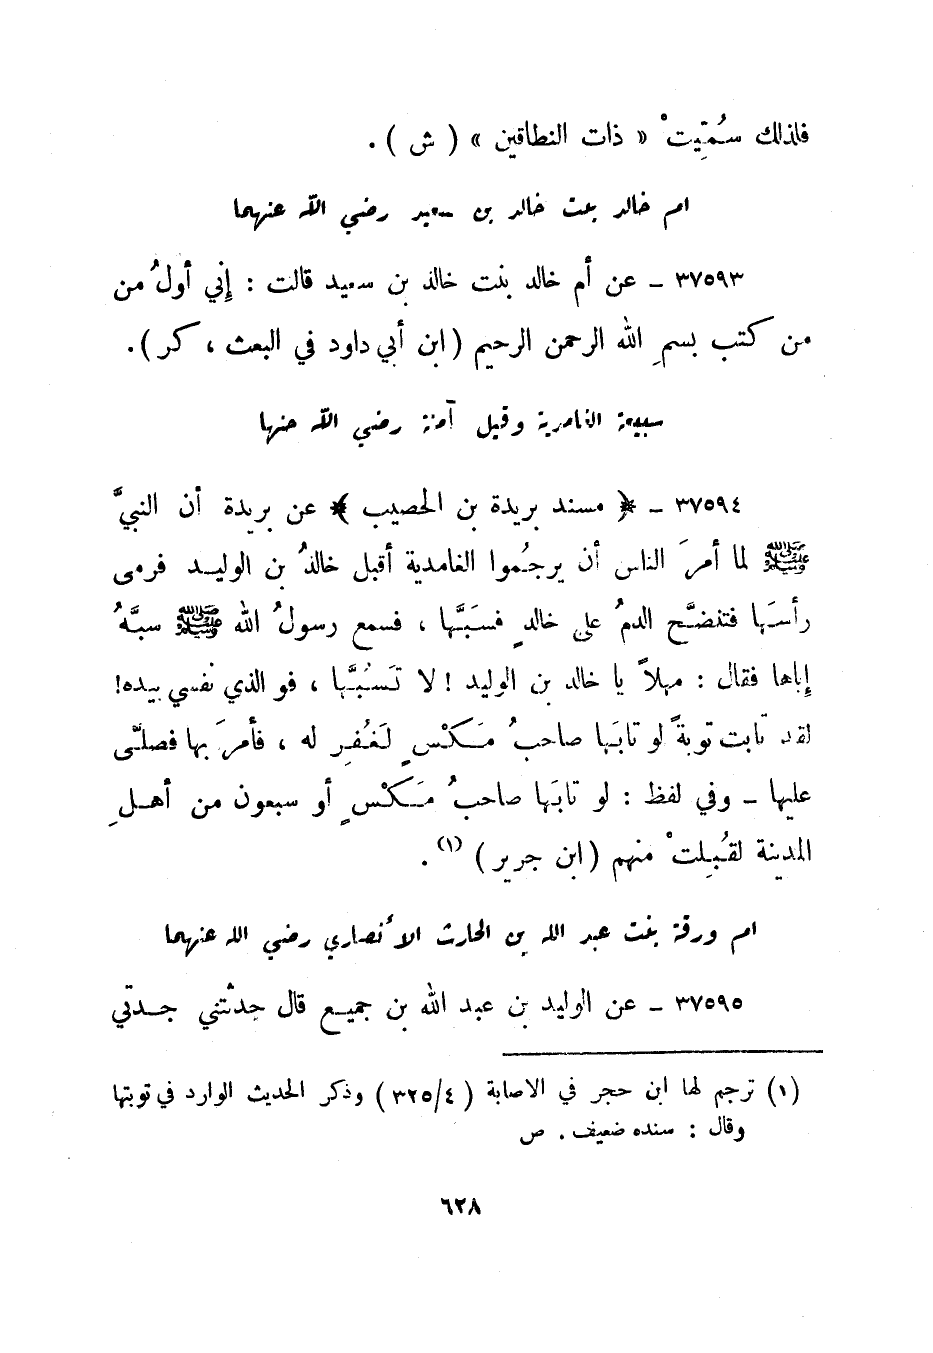 فلذلك سُمّيتْ « ذات النطاقين » ( ش ) .
ام خالد بنت خالد بن سعيد رضي الله عنهما
٣٧٥٩٣ ـ عن أم خالد بنت خالد بن سعيد قالت : إني أولُ من
من كتب بسمِ الله الرحمن الرحيم ( ابن أبي داود في البعث ، كر ) .
سبيعة الغامدية وقيل آمنة رضي الله عنها
٣٧٥٩٤ ـ ﴿ مسند بريدة بن الحصيب ﴾ عن بريدة أن النبيَّ
ﷺ لما أمرَ الناس أن يرجُموا الغامدية أقبل خالدُ بن الوليد فرمى
رأسَها فتنضَّح الدمُ على خالدٍ فسَبَّها ، فسمع رسولُ الله ﷺ سبَّهُ
إياها فقال : مهلاً يا خالد بن الوليد ! لا تَسُبَّها ، فو الذي نفسي بيده!
لقد تابت توبةً لو تابَها صاحبُ مَكْسٍ لَغُفِر له ، فأمرَ بها فصلّى
عليها ـ وفي لفظ : لو تابَها صاحبُ مَكْسٍ أو سبعون من أهلِ
المدينة لقُبِلتْ منهم ( ابن جرير ) (١) .
ام ورقة بنت عبد الله بن الحارث الأنصاري رضي الله عنهما
٣٧٥٩٥ ـ عن الوليد بن عبد الله بن جميع قال حدثتني جدتي
(١) ترجم لها ابن حجر في الاصابة ( ٣٢٥/٤ ) وذكر الحديث الوارد في توبتها
وقال : سنده ضعيف . ص
٦٢٨